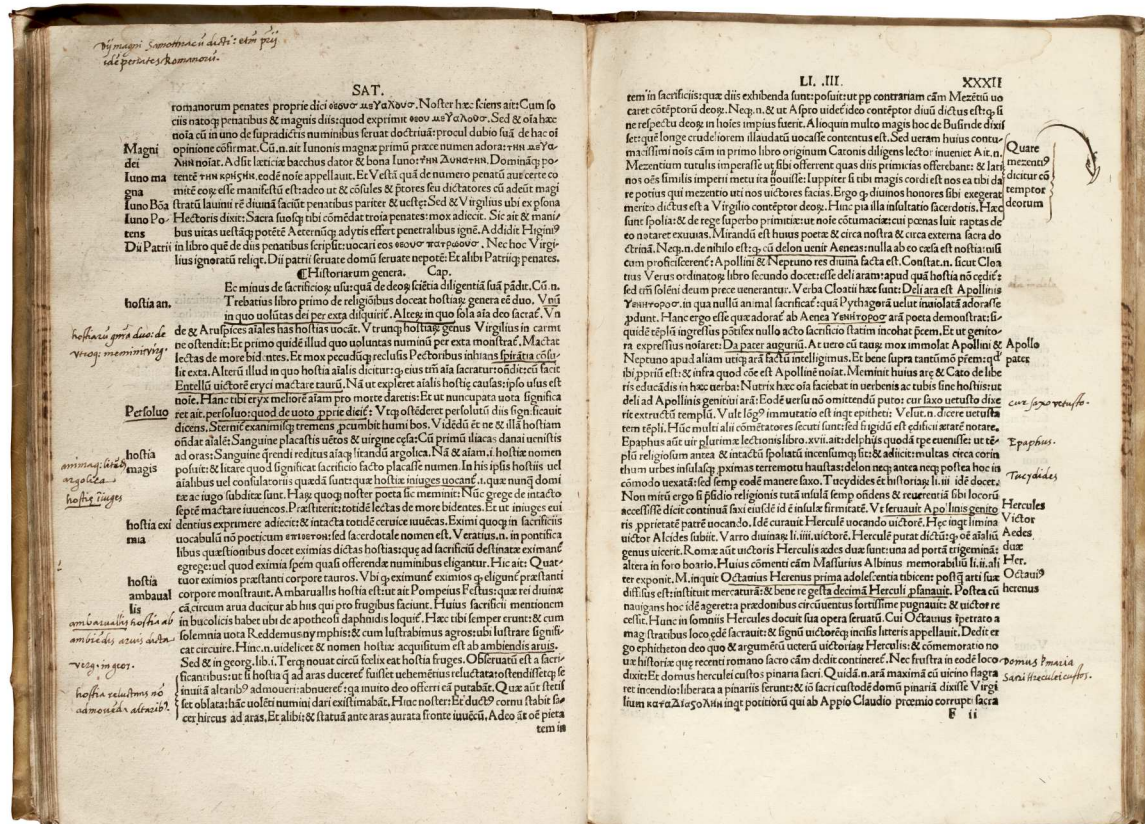 Dij magni Samothracū dicti: etiā prij
idē penates Romanorū.
SAT.
romanorum penates proprie dici θεουσ μεγαλουσ. Noster hæc sciens ait: Cum so
ciis natoq; penatibus & magnis diis: quod exprimit θεου μεγαλουσ. Sed & oīa hæc
noīa cū in uno de supradictis numinibus seruat doctrinā: procul dubio suā de hac oī
opinione cōfirmat. Cū .n. ait Iunonis magnæ primū præce numen adora: την μεγα
λην noīat. Adsit læticiæ bacchus dator & bona Iuno: την Δυνατην. Dominaq; po
tentē την κρησην. eodē noīe appellauit. Et Vestā quā de numero penatū aut certe co
mitē eoꝝ esse manifestū est: adeo ut & cōsules & p̄tores seu dictatores cū adeūt magi
stratū lauini rē diuinā faciūt penatibus pariter & uestę: Sed & Virgilius ubi ex p̄sona
Hectoris dixit: Sacra suosq; tibi cōmēdat troia penates: mox adiecit. Sic ait & mani/
bus uitas uestāq; potētē Aeternūq; adytis effert penetralibus ignē. Addidit Higiniꝰ
in libro quē de diis penatibus scripsit: uocari eos θεουσ πατρωουσ. Nec hoc Virgi/
lius ignoratū reliqt. Dii patrii seruate domū seruate nepotē: Et alibi Patriiq; penates.
Magni
dei
Iuno ma
gna
Iuno Bōa
Iuno Po/
tens
Dii Patrii
¶ Historiarum genera. Cap.
Ec minus de sacrificioꝝ usu: quā de deoꝝ sciētia diligentiā suā pādit. Cū .n.
Trebatius libro primo de religiōibus doceat hostiaꝝ genera eē duo. Vnū
in quo uolūtas dei per exta disquirit̄. Alteꝝ in quo sola aīa deo sacrat̄. Vn
de & Aruspices aīales has hostias uocāt. Vtrunq; hostiaꝝ genus Virgilius in carmī
ne ostendit: Et primo quidē illud quo uoluntas numinū per exta monstrat̄. Mactat
lectas de more bidentes. Et mox pecudūq; reclusis Pectoribus inhians spirātia cōsu/
lit exta. Alterū illud in quo hostia aīalis dicitur: q̄ eius tm̄ aīa sacratur: ōndit: cū facit
Entellū uictorē eryci mactare taurū. Nā ut expleret aīalis hostię causas: ipso usus est
noīe. Hanc tibi eryx meliorē aīam pro morte daretis: Et ut nuncupata uota signifíca
ret ait. persoluo: quod de uoto p̄prie dicit̄: Vtq; ostēderet persolutū diis significauit
dicens. Sternit̄ exanimisq; tremens p̄cumbit humi bos. Vidēdū ēt ne & illā hostiam
ōndat aīalē: Sanguine placastis uētos & uirgine cęsa: Cū primū iliacas danai uenistis
ad oras: Sanguine q̄rendi reditus aīaq; litandū argolica. Nā & aīam .i. hostiæ nomen
posuit: & litare quod significat sacrificio facto placasse numen. In his ipsis hostiis uel
aīalibus uel consulatoriis quædā sunt: quæ hostiæ iniuges uocant̄ .i. quæ nunq̄ domi
tæ ac iugo subditæ sunt. Haꝝ quoq; noster poeta sic meminit: Nūc grege de intacto
septē mactare iuuencos. Præstiterit: totidē lectas de more bidentes. Et ut iniuges eui
dentius exprimere adiecit: & intacta totidē ceruice iuuēcas. Eximi quoq; in sacrificiis
uocabulū nō poeticum επιθετον: sed sacerdotale nomen est. Veratius .n. in pontifica
libus quæstionibus docet eximias dictas hostias: quę ad sacrificiū destinatæ eximant̄
e grege: uel quod eximia spem quasi offerendæ numinibus eligantur. Hic ait: Quat/
tuor eximios præstanti corpore tauros. Vbi q̄ eximunt̄ eximios q̄ eligunt̄ præstanti
corpore monstrauit. Ambaruallis hostia est: ut ait Pompeius Festus: quæ rei diuinæ
cā circum arua ducitur ab hiis qui pro frugibus faciunt. Huius sacrificii mentionem
in bucolicis habet ubi de apotheosi daphnidis loquit̄. Hæc tibi semper erunt: & cum
solemnia uota Reddemus nymphis: & cum lustrabimus agros: ubi lustrare signifi/
cat circuire. Hinc .n. uidelicet & nomen hostiæ acquisitum est ab ambiendis aruis.
Sed & in georg. lib. i. Terq; nouat circū fœlix eat hostia fruges. Obseruatū est a sacri/
ficantibus: ut si hostia q̄ ad aras duceret̄ fuisset uehemētius reluctata: ostendissetq; se
inuitā altaribꝰ admoueri: abnueret̄: qa inuito deo offerri eā putabāt. Quæ aūt stetis/
set oblata: hāc uolēti numini dari existimabāt. Hinc noster: Et ductꝰ cornu stabit sa/
cer hircus ad aras. Et alibi: & statuā ante aras aurata fronte iuuēcū. Adeo āt oē pieta
tem in
hostia an.
Persoluo
hostia
magis
hostia exi
mia
hostia
ambaual
lis
hostiarū gn̄a duo: de
vtroq; meminit virg.
animaq; litādū
argolica
hostię iuges
ambarualis hostia ab
ambiēdis aruis dicta
virg. in geor.
hostia reluctans nō
admouēda altaribꝰ.
LI. .III.
XXXII
tem in sacrificiis: quæ diis exhibenda sunt: posuit: ut pp contrariam cām Mezētiū uo
caret cōtēptorū deoꝝ. Neq; .n. & ut Aspro uidet̄ ideo contēptor diuū dictus est: q̄ si
ne respectu deoꝝ in hoīes impius fuerit. Alioquin multo magis hoc de Busiride dixis
set: quē longe crudeliorem illaudatū uocasse contentus est. Sed ueram huius contu/
macissimi noīs cām in primo libro originum Catonis diligens lector inueniet. Ait .n.
Mezentium tutulis imperasse ut sibi offerrent quas diis primicias offerebant: & lati
nos oēs similis imperi metu ita uouisse: Iuppiter si tibi magis cordi est nos ea tibi da
re potius qui mezentio uti nos uictores facias. Ergo q̄ diuinos honores sibi exegerat
merito dictus est a Virgilio contēptor deoꝝ. Hinc pia illa insultatio sacerdotis. Hæc
sunt spolia: & de rege superbo primitiæ: ut noīe cōtumaciæ: cui pœnas luit raptas de
eo notaret exuuias. Mirandū est huius poetæ & circa nostra & circa externa sacra do
ctrinā. Neq; .n. de nihilo est: q̄ cū delon uenit Aeneas: nulla ab eo cæsa est hostia: nisi
cum proficisceret̄: Apollini & Neptuno res diuina facta est. Constat .n. sicut Cloa
tius Verus ordinatoꝝ libro secundo docet: esse deli aram: apud quā hostia nō cędit̄:
sed tm̄ solēni deum prece uenerantur. Verba Cloatii hæc sunt: Deli ara est Apollinis
γενητορος. in qua nullū animal sacrificat̄: quā Pythagorā uelut inuiolatā adorasse
p̄dunt. Hanc ergo esse quæ adorat̄ ab Aenea γενητορος arā poeta demonstrat: si
quidē tēplū ingressus pōtifex nullo acto sacrificio statim incohat p̄cem. Et ut genito/
rē expressius nosaret: Da pater auguriū. At uero cū taurū mox immolat Apollini &
Neptuno apud aliam utiq; arā factū intelligimus. Et bene supra tantūmō p̄rem: qd̄
ibi p̄priū est: & infra quod cōe est Apollinē noīat. Meminit huius arę & Cato de libe
ris educādis in hæc uerba: Nutrix hæc oīa faciebat in uerbenis ac tubis sine hostiis: ut
deli ad Apollinis genitiui arā: Eodē uersu nō omittendū puto: cur saxo uetusto dixe
rit extructū templū. Vult lōgꝰ immutatio est inqt epitheti: Velut .n. dicere uetusta
tem tēpli. Hūc multi alii cōmētatores secuti sunt: sed frigidū est ędificii ætatē notare.
Epaphus aūt uir plurimæ lectionis libro. xvii. ait: delphis quodā tp̄e euenisse: ut tē/
plū religiosum antea & intactū spoliatū incensumq; sit: & adiicit: multas circa corin
thum urbes insulasq; pximas terremotu haustas: delon neq; antea neq; postea hoc in
cōmodo uexatā: sed semp eodē manere saxo. Tucydides ēt historiaꝝ li. iii idē docet.
Non mirū ergo si p̄sidio religionis tutā insulā semp ōndens & reuerentiā sibi locorū
accessisse dicit continuā saxi eiusdē id ē insulæ firmitatē. Vt seruauit Apollinis genito
ris p̄prietatē patrē uocando. Idē curauit Herculē uocando uictorē. Hęc inqt limina
victor Alcides subiit. Varro diuinaꝝ li. iiii. uictorē. Herculē putat dictū: q̄ oē aīaliū
genus uicerit. Romæ aūt uictoris Herculis ædes duæ sunt: una ad portā trigeminā:
altera in foro boario. Huius cōmenti cām Massurius Albinus memorabiliū li. ii. ali
ter exponit. M. inquit Octauius Herenus prima adolescentia tibicen: postq̄ arti suæ
diffisus est: instituit mercaturā: & bene re gesta decimā Herculi p̄fanauit. Postea cū
nauigans hoc idē ageret: a prædonibus circūuentus fortissime pugnauit: & uictor re
cessit. Hunc in somnis Hercules docuit sua opera seruatū. Cui Octauius īpetrato a
magistratibus loco ędē sacrauit: & signū uictorēq; incisis litteris appellauit. Dedit er
go epitheton deo quo & argumētū ueterū uictoriaꝝ Herculis: & cōmemoratio no
uæ historiæ quę recenti romano sacro cām dedit contineret̄. Nec frustra in eodē loco
dixit: Et domus herculei custos pinaria sacri. Quidā .n. arā maximā cū uicino flagra
ret incendio: liberata a pinariis ferunt: & iō sacri custodē domū pinariā dixisse Virgi
lium καταΔιαςολην inqt potitiorū qui ab Appio Claudio præmio corrupti sacra
F ii
Quare
mezentiꝰ
dicitur cō
temptor
deorum
Apollo
pater
cur saxo vetusto.
Epaphus.
Tucydides
Hercules
Victor
Aedes
duæ
Her.
Octauiꝰ
herenus
Domus Pinaria
Sacri Herculei custos.